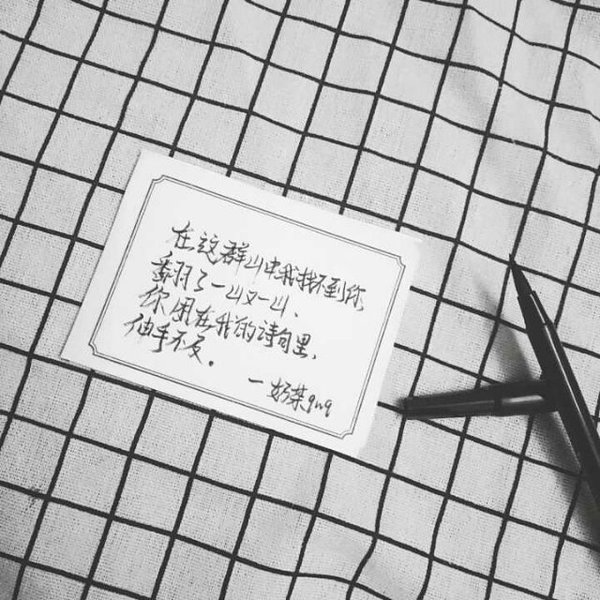 在这群山中我找不到你,
翻了一山又一山、
你困在我的诗句里,
伸手不及。
一奶茶9n9